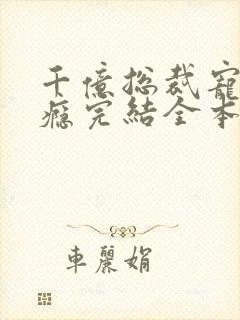 千億總裁寵
癮完結全本
車麗娟